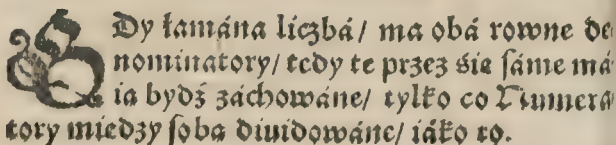 GDy łamána liczbá/ ma obá rowne de
nominatory/ tedy te przez śię sáme má
ią bydź záchowáne/ tylko co Numerá
tory miedzy sobą diuidowáne/ iáko to.